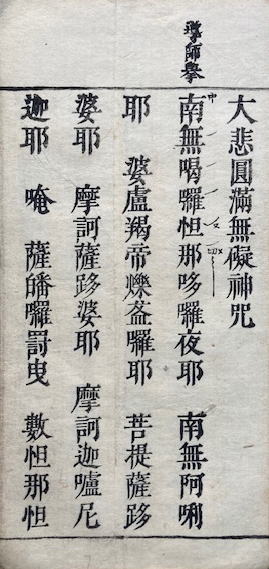 導師舉
大悲圓滿無礙神咒
南無喝囉怛那哆囉夜耶　南無阿唎
耶　婆盧羯帝爍盋囉耶　菩提薩跢
婆耶　摩訶薩跢婆耶　摩訶迦嚧尼
迦耶　唵　薩皤囉罰曳　數怛那怛